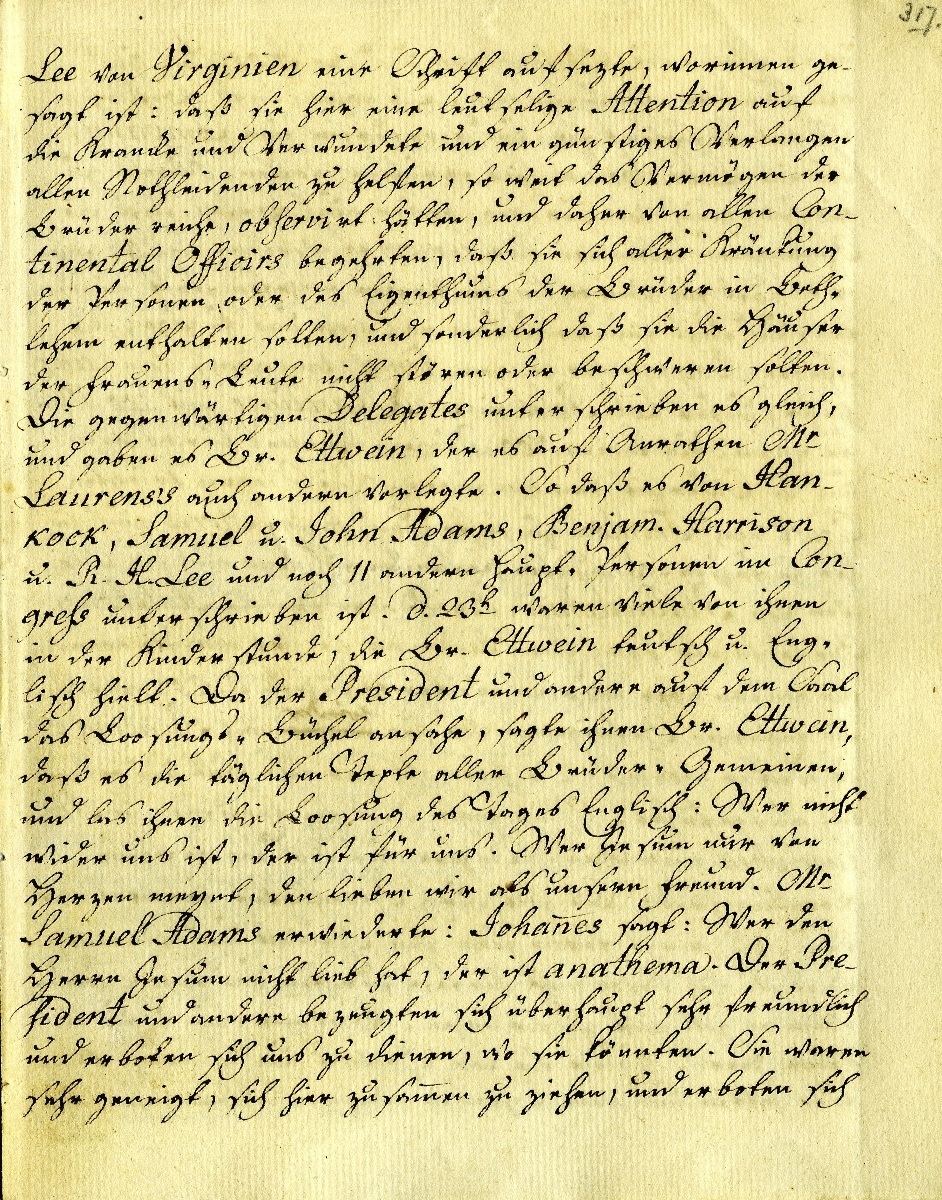 317.
Lee von Virginien eine Schrift aufsezte, worinnen ge-
sagt ist: daß sie hier eine leutselige Attention auf
die Krancke und Verwundete und ein günstiges Verlangen
allen Nothleidenden zu helfen, so weit das Vermögen der
Brüder reiche, observirt hätten, und daher von allen Con-
tinental Officirs begehrten, daß sie sich aller Kränkung
der Personen oder des Eigenthums der Brüder in Beth-
lehem enthalten solten, und sonderlich daß sie die Häuser
der Frauens-Leute nicht stören oder beschweren solten.
Die gegenwärtigen Delegates unterschrieben es gleich,
und gaben es Br. Ettwein, der es auf Anrathen Mr
Laurens's auch andern vorlegte. So daß es von Han-
kock, Samuel u. John Adams, Benjam. Harrison
u. R. H. Lee und noch 11 andern Haupt-Personen im Con-
greß unterschrieben ist. D. 23t waren viele von ihnen
in der Kinderstunde, die Br. Ettwein teutsch u. Eng-
lisch hielt. Da der President und andere auf dem Saal
das Loosungs-Büchel ansahe, sagte ihnen Br. Ettwein,
daß es die täglichen Texte aller Brüder-Gemeinen,
und las ihnen die Loosung des Tages Englisch: Wer nicht
wider uns ist, der ist für uns. Wer Jesum nur von
Herzen meynt, den lieben wir als unsern Freund. Mr
Samuel Adams erwiederte: Johañes sagt: Wer den
Herrn Jesum nicht lieb hat, der ist anathema. Der Pre-
sident und andere bezeugten sich überhaupt sehr freundlich
und erboten sich uns zu dienen, wo sie könnten. Sie waren
sehr geneigt, sich hier zusam̄en zu ziehen, und erboten sich